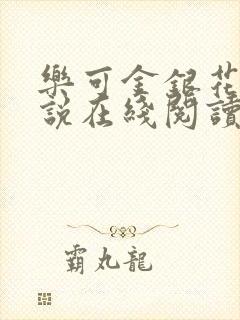 樂可金銀花
說在綫閱讀
霸丸龍